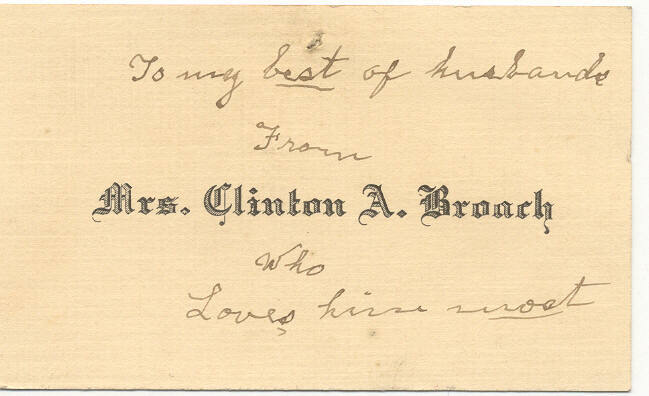 To my best of husbands
From
Mrs. Clinton A. Broach
Who
Loves him most